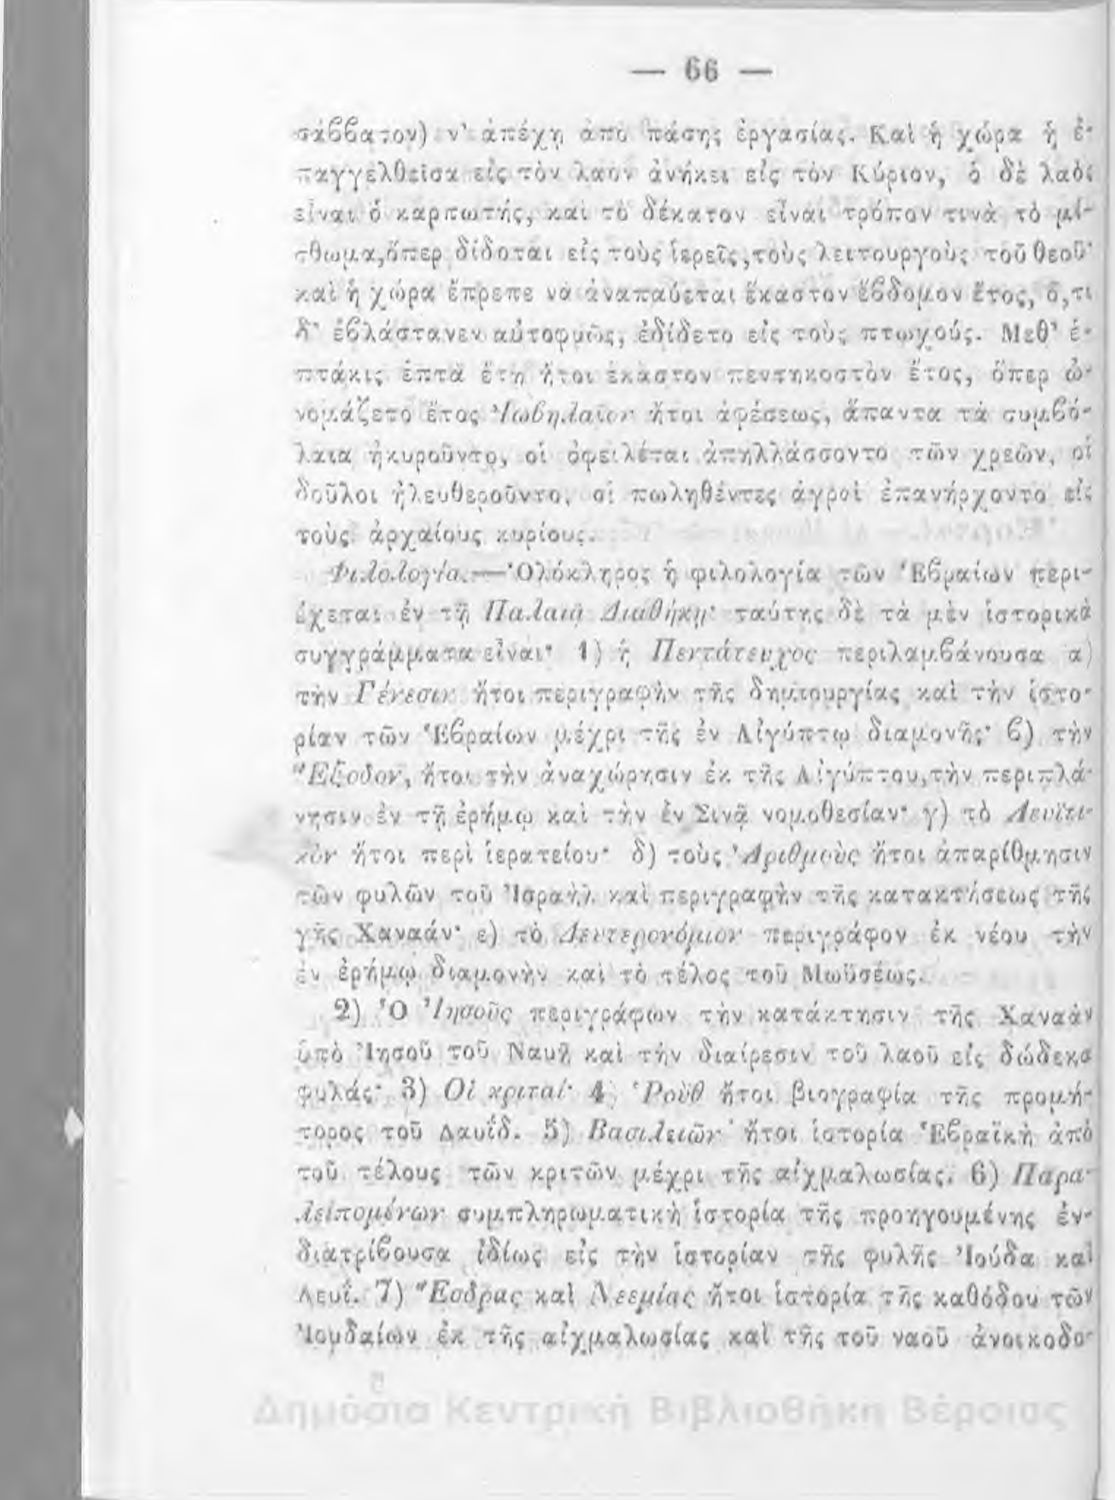 — 66 —
σάββατον) ν' ἀπέχῃ ἀπὸ πάσης ἐργασίας. Καὶ ἡ χώρα ἡ ἐ-
παγγελθεῖσα εἰς τὸν λαὸν ἀνήκει εἰς τὸν Κύριον, ὁ δὲ λαὸς
εἶναι ὁ καρπωτής, καὶ τὸ δέκατον εἶναι τρόπον τινὰ τὸ μί-
σθωμα, ὅπερ δίδοται εἰς τοὺς ἱερεῖς, τοὺς λειτουργοὺς τοῦ θεοῦ·
καὶ ἡ χώρα ἔπρεπε νὰ ἀναπαύεται ἕκαστον ἕβδομον ἔτος, ὅ,τι
δ' ἐβλάστανεν αὐτοφυῶς, ἐδίδετο εἰς τοὺς πτωχούς. Μεθ' ἑ-
πτάκις ἑπτὰ ἔτη ἤτοι ἕκαστον πεντηκοστὸν ἔτος, ὅπερ ὠ-
νομάζετο ἔτος Ἰωβηλαῖον ἤτοι ἀφέσεως, ἅπαντα τὰ συμβό-
λαια ἠκυροῦντο, οἱ ὀφειλέται ἀπηλλάσσοντο τῶν χρεῶν, οἱ
δοῦλοι ἠλευθεροῦντο, οἱ πωληθέντες ἀγροὶ ἐπανήρχοντο εἰς
τοὺς ἀρχαίους κυρίους.
Φιλολογία.—Ὁλόκληρος ἡ φιλολογία τῶν Ἑβραίων περι-
έχεται ἐν τῇ Παλαιᾷ Διαθήκῃ· ταύτης δὲ τὰ μὲν ἱστορικὰ
συγγράμματα εἶναι· 1) ἡ Πεντάτευχος περιλαμβάνουσα α)
τὴν Γένεσιν ἤτοι περιγραφὴν τῆς δημιουργίας καὶ τὴν ἱστο-
ρίαν τῶν Ἑβραίων μέχρι τῆς ἐν Αἰγύπτῳ διαμονῆς· β) τὴν
Ἔξοδον, ἤτοι τὴν ἀναχώρησιν ἐκ τῆς Αἰγύπτου, τὴν περιπλά-
νησιν ἐν τῇ ἐρήμῳ καὶ τὴν ἐν Σινᾷ νομοθεσίαν· γ) τὸ Λευϊτι-
κὸν ἤτοι περὶ ἱερατείου· δ) τοὺς Ἀριθμοὺς ἤτοι ἀπαρίθμησιν
τῶν φυλῶν τοῦ Ἰσραὴλ καὶ περιγραφὴν τῆς κατακτήσεως τῆς
γῆς Χαναάν· ε) τὸ Δευτερονόμιον περιγράφον ἐκ νέου τὴν
ἐν ἐρήμῳ διαμονὴν καὶ τὸ τέλος τοῦ Μωϋσέως.
2) Ὁ Ἰησοῦς περιγράφων τὴν κατάκτησιν τῆς Χαναὰν
ὑπὸ Ἰησοῦ τοῦ Ναυῆ καὶ τὴν διαίρεσιν τοῦ λαοῦ εἰς δώδεκα
φυλάς· 3) Οἱ κριταί· 4) Ῥοὺθ ἤτοι βιογραφία τῆς προμή-
τορος τοῦ Δαυΐδ. 5) Βασιλειῶν ἤτοι ἱστορία Ἑβραϊκὴ ἀπὸ
τοῦ τέλους τῶν κριτῶν μέχρι τῆς αἰχμαλωσίας. 6) Παρα-
λειπομένων συμπληρωματικὴ ἱστορία τῆς προηγουμένης ἐν-
διατρίβουσα ἰδίως εἰς τὴν ἱστορίαν τῆς φυλῆς Ἰούδα καὶ
Λευΐ. 7) Ἔσδρας καὶ Νεεμίας ἤτοι ἱστορία τῆς καθόδου τῶν
Ἰουδαίων ἐκ τῆς αἰχμαλωσίας καὶ τῆς τοῦ ναοῦ ἀνοικοδο-
Δημόσια Κεντρική Βιβλιοθήκη Βέροιας